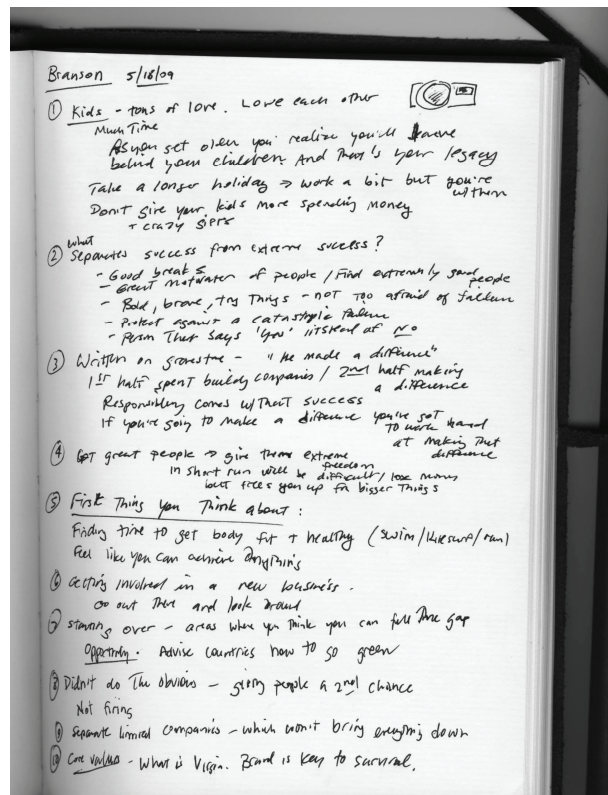 Branson 5/18/09
① Kids - tons of love. Love each other
Much Time
As you get older you realize you'll leave
behind your children. And That's your legacy
Take a longer holiday → work a bit but you're
w/them
Don't give your kids more spending money
+ crazy gifts
② What
Separates success from extreme success?
- Good breaks
- Great motivator of people / Find extremely good people
- Bold, brave, try Things - not Too afraid of failure
- Protect against a catastrophic failure
- Person That says 'Yes' instead of No
③ Written on gravestone - "He made a difference"
1st half spent building companies / 2nd half making
a difference
Responsibility comes w/That success
If you're going to make a difference you've got
To work hard
at making That
difference
④ Get great people → give them extreme
freedom
in short run will be difficult / lose money
but frees you up for bigger Things
⑤ First Thing you Think about:
Finding time to get body fit + healthy (swim/kitesurf/run)
Feel like you can achieve anything
⑥ Getting involved in a new business.
Go out There and look around
⑦ Starting over - areas where you Think you can fill The gap
Opportunity. Advise countries how to go green
⑧ Didn't do The obvious - giving people a 2nd chance
Not firing
⑨ Separate limited companies - which won't bring everything down
⑩ Core values - What is Virgin. Brand is key to survival.